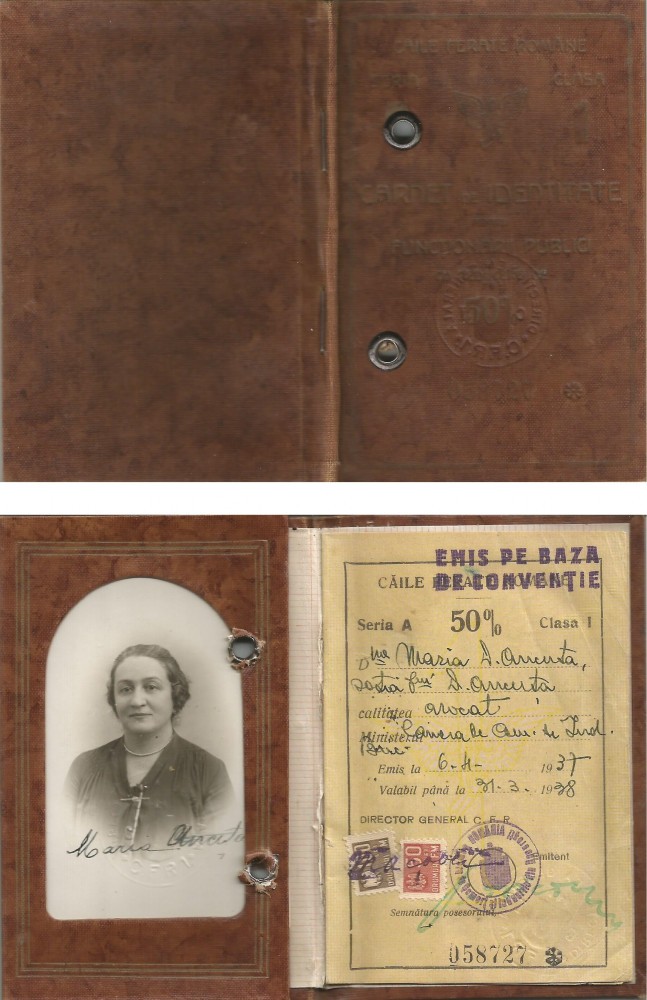 CĂILE FERATE ROMÂNE
SERIA CLASA
CARNET DE IDENTITATE
FUNCȚIONARI PUBLICI
50%
058727
EMIS PE BAZA
DE CONVENȚIE
CĂILE FERATE ROMÂNE
Seria A 50% Clasa I
Dna Maria D. Ancuta,
soția D. Ancuta
calitatea avocat
Ministerul Camera de Ind.
Emis la 6-4- 1937
Valabil până la 31.3. 1938
DIRECTOR GENERAL C. F. R.
Emitent
Semnătura posesorului,
058727
Maria Ancuta